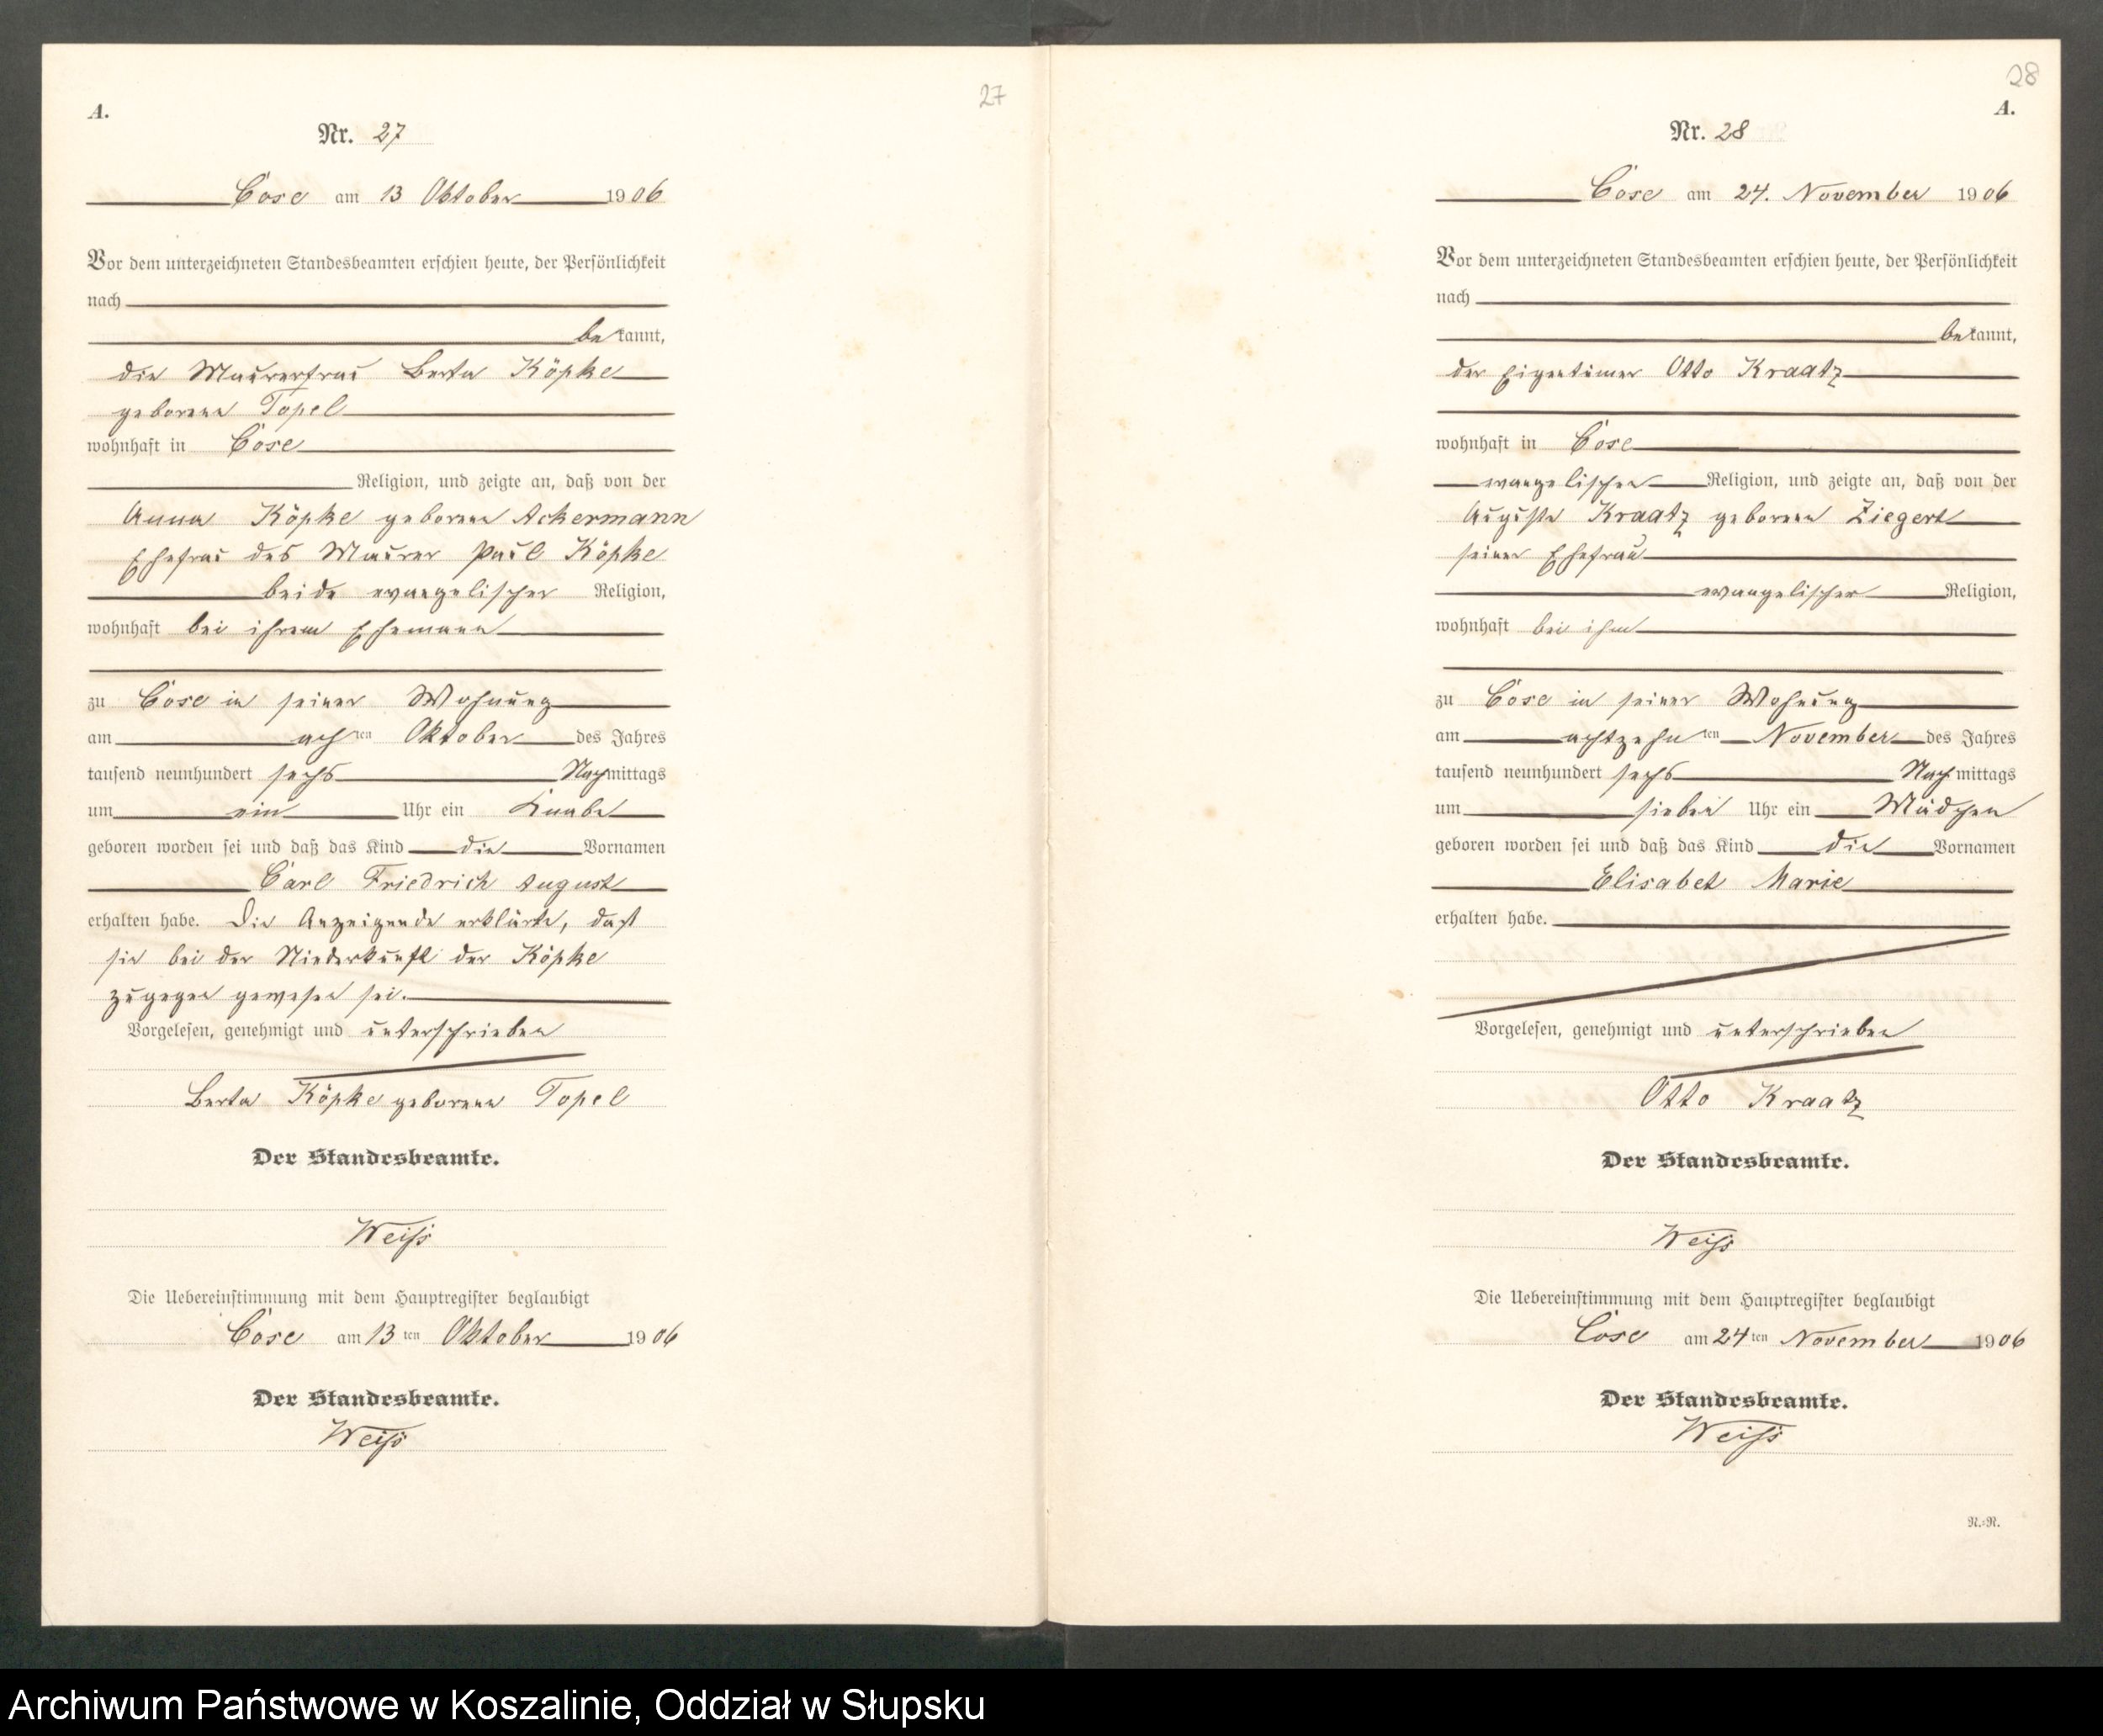 27
A.
Nr. 27
Cose am 13 Oktober 1906
Vor dem unterzeichneten Standesbeamten erschien heute, der Persönlichkeit
nach
bekannt,
die Maurerfrau Berta Köpke
geborene Topel
wohnhaft in Cose
Religion, und zeigte an, daß von der
Anna Köpke geborene Ackermann
Ehefrau des Maurer Paul Köpke
beide evangelischer Religion,
wohnhaft bei ihrem Ehemann
zu Cose in seiner Wohnung
am achten Oktober des Jahres
tausend neunhundert sechs Nachmittags
um ein Uhr ein Knabe
geboren worden sei und daß das Kind die Vornamen
Carl Friedrich August
erhalten habe. Die Anzeigende erklärte, dass
sie bei der Niederkunft der Köpke
zugegen gewesen sei.
Vorgelesen, genehmigt und unterschrieben
Berta Köpke geborene Topel
Der Standesbeamte.
Weiss
Die Uebereinstimmung mit dem Hauptregister beglaubigt
Cose am 13ten Oktober 1906
Der Standesbeamte.
Weiss
28
A.
Nr. 28
Cose am 24. November 1906
Vor dem unterzeichneten Standesbeamten erschien heute, der Persönlichkeit
nach
bekannt,
der Eigentümer Otto Kraatz
wohnhaft in Cose
evangelischen Religion, und zeigte an, daß von der
Auguste Kraatz geborene Ziegert
seiner Ehefrau
evangelischer Religion,
wohnhaft bei ihm
zu Cose in seiner Wohnung
am achtzehnten November des Jahres
tausend neunhundert sechs Nachmittags
um sieben Uhr ein Mädchen
geboren worden sei und daß das Kind die Vornamen
Elisabet Marie
erhalten habe.
Vorgelesen, genehmigt und unterschrieben
Otto Kraatz
Der Standesbeamte.
Weiss
Die Uebereinstimmung mit dem Hauptregister beglaubigt
Cose am 24ten November 1906
Der Standesbeamte.
Weiss
N.=N.
Archiwum Państwowe w Koszalinie, Oddział w Słupsku